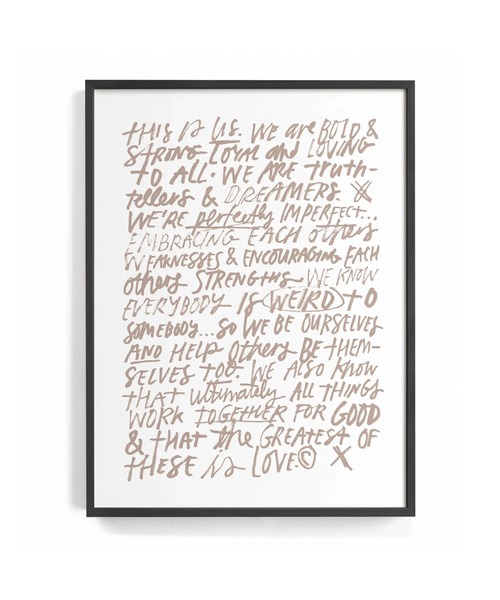 THIS is US. WE are BOLD &
STRONG LOYAL and LOVING
TO ALL. WE ARE truth-
tellers & DREAMERS
WE'RE perfectly IMPERFECT...
EMBRACING EACH others
WEAKNESSES & ENCOURAGING EACH
others STRENGTHS WE KNOW
EVERYBODY IS WEIRD TO
SOMEBODY...SO WE BE OURSELVES
AND HELP others BE THEM-
SELVES TOO WE ALSO KNOW
THAT ultimately ALL THINGS
WORK TOGETHER FOR GOOD
& THAT the GREATEST OF
THESE is LOVE.© X